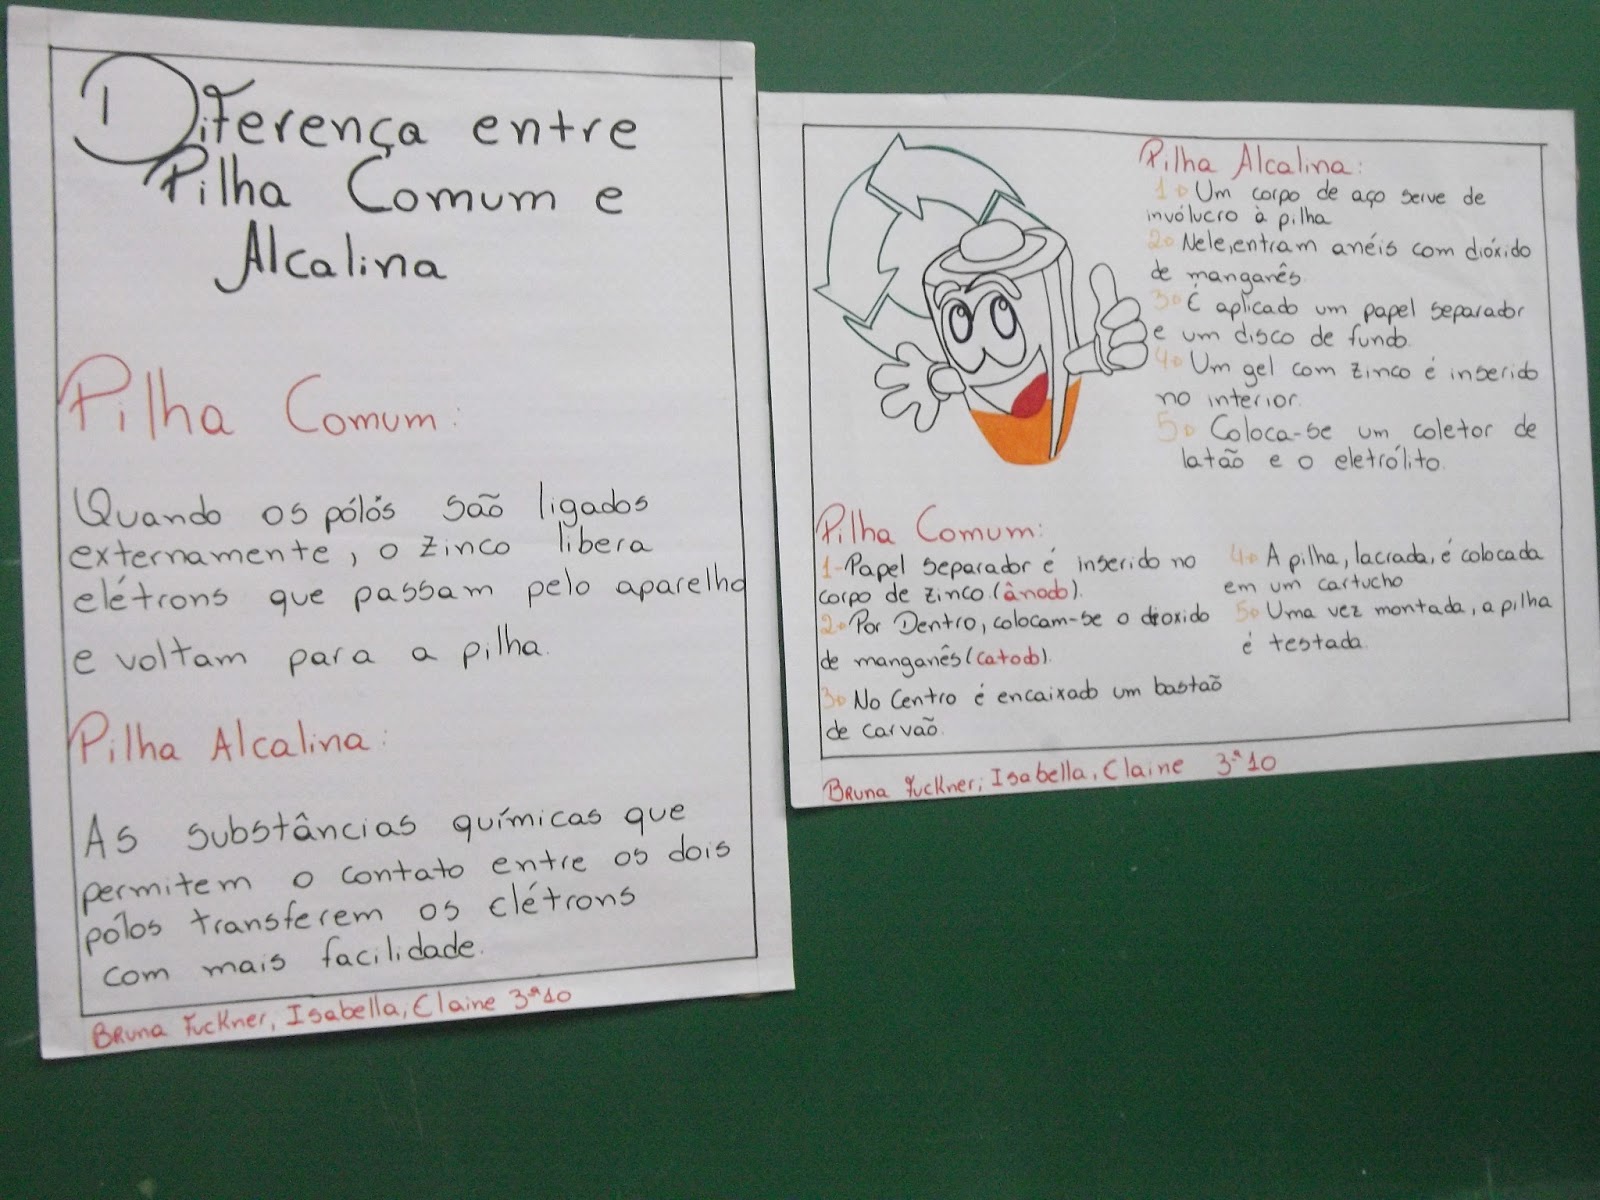 Diferença entre
Pilha Comum e
Alcalina
Pilha Comum:
Quando os pólós são ligados
externamente, o zinco libera
elétrons que passam pelo aparelho
e voltam para a pilha.
Pilha Alcalina:
As substâncias químicas que
permitem o contato entre os dois
pólos transferem os elétrons
com mais facilidade.
Bruna Fuckner, Isabella, Elaine 3ª10
Pilha Alcalina:
1º Um corpo de aço serve de
invólucro à pilha
2º Nele, entram anéis com dióxido
de manganês.
3º É aplicado um papel separador
e um disco de fundo.
4º Um gel com zinco é inserido
no interior.
5º Coloca-se um coletor de
latão e o eletrólito.
Pilha Comum:
1-Papel separador é inserido no
corpo de zinco.(ânodo).
2º Por Dentro, colocam-se o dioxido
de manganês (catodo).
3º No Centro é encaixado um bastaõ
de carvaõ.
4º A pilha, lacrada, é colocada
em um cartucho
5º Uma vez montada, a pilha
é testada.
Bruna Fuckner; Isabella, Elaine 3ª10